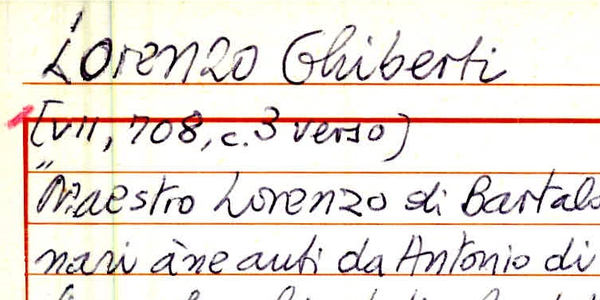 Lorenzo Ghiberti
[VII, 708, c. 3 verso]
"Maestro Lorenzo di Bartalo
nari àne auti da Antonio di